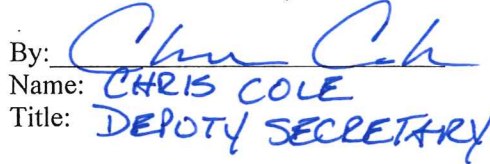 By: Chris Cole
Name: CHRIS COLE
Title: DEPUTY SECRETARY